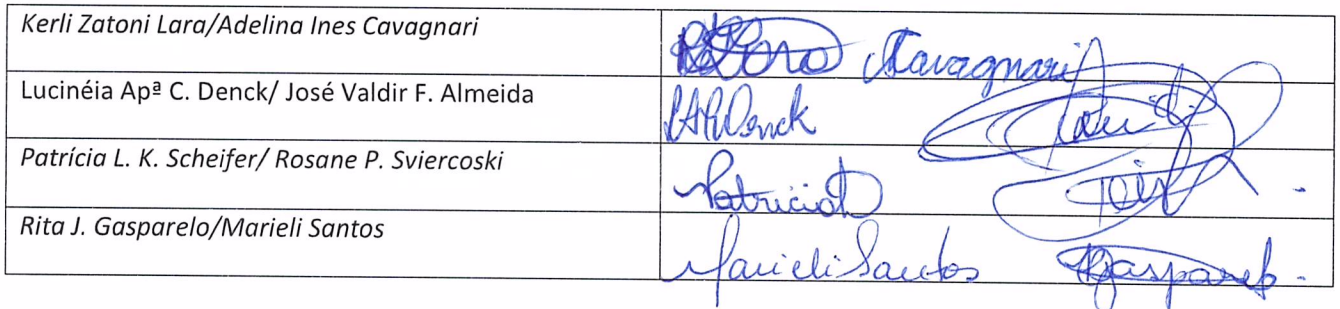 Kerli Zatoni Lara/Adelina Ines Cavagnari Cavagnari
Lucinéia Apª C. Denck/ José Valdir F. Almeida Denck
Patrícia L. K. Scheifer/ Rosane P. Sviercoski Patricia
Rita J. Gasparelo/Marieli Santos Marieli Santos